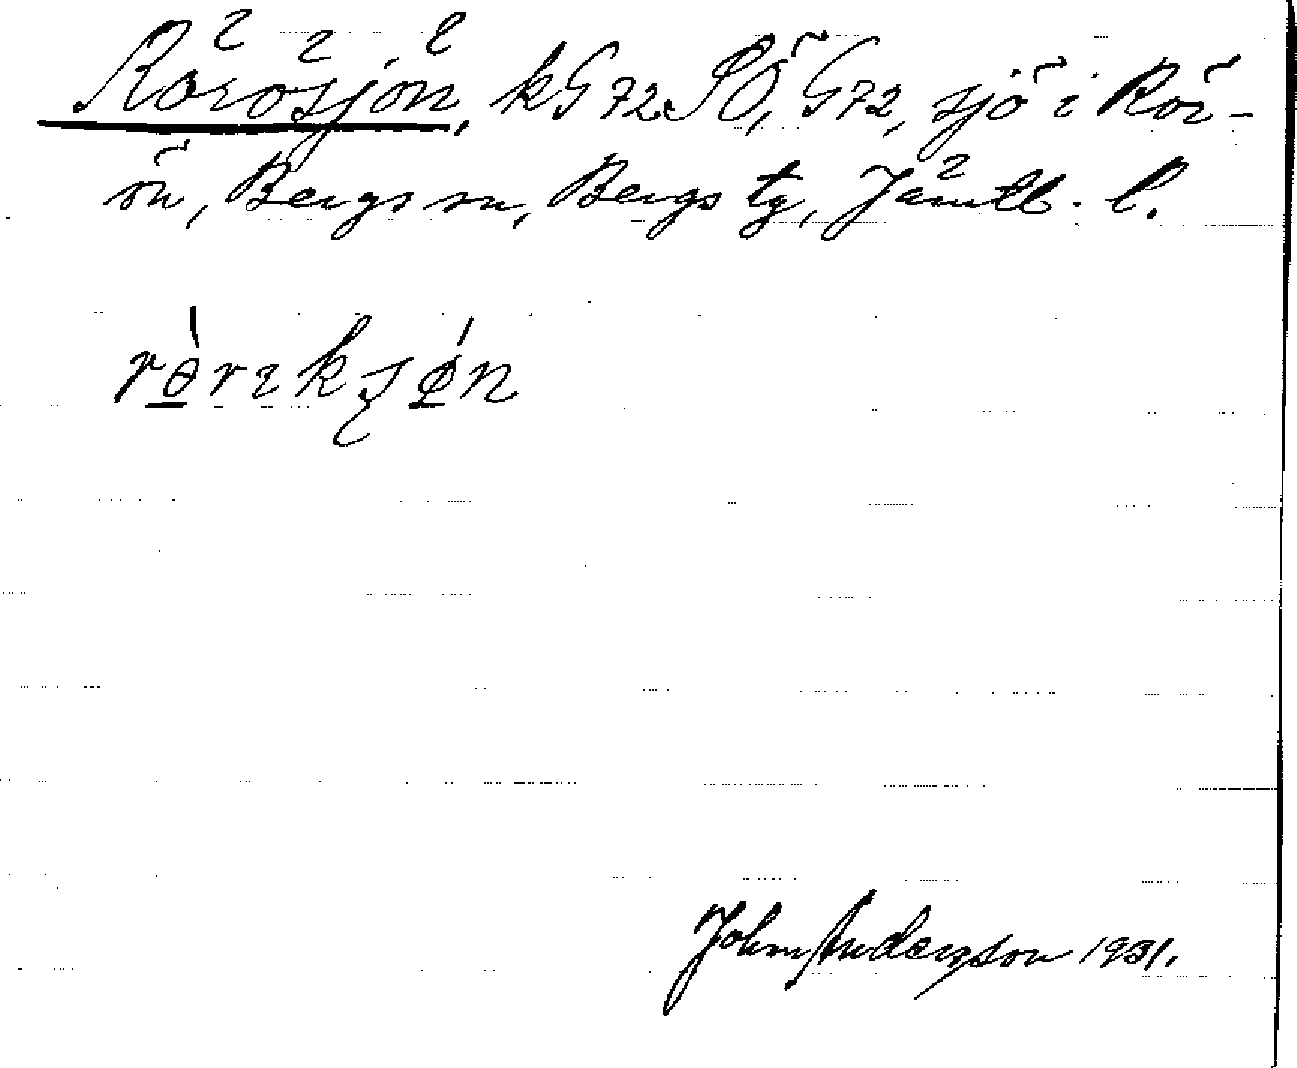 Rörösjön, kG72SÖ, G72, sjö i Rör-
ön, Bergs sn, Bergs tg, Jämtl. l.
rɵ̀rɪkʂǿn
John Anderson 1931.